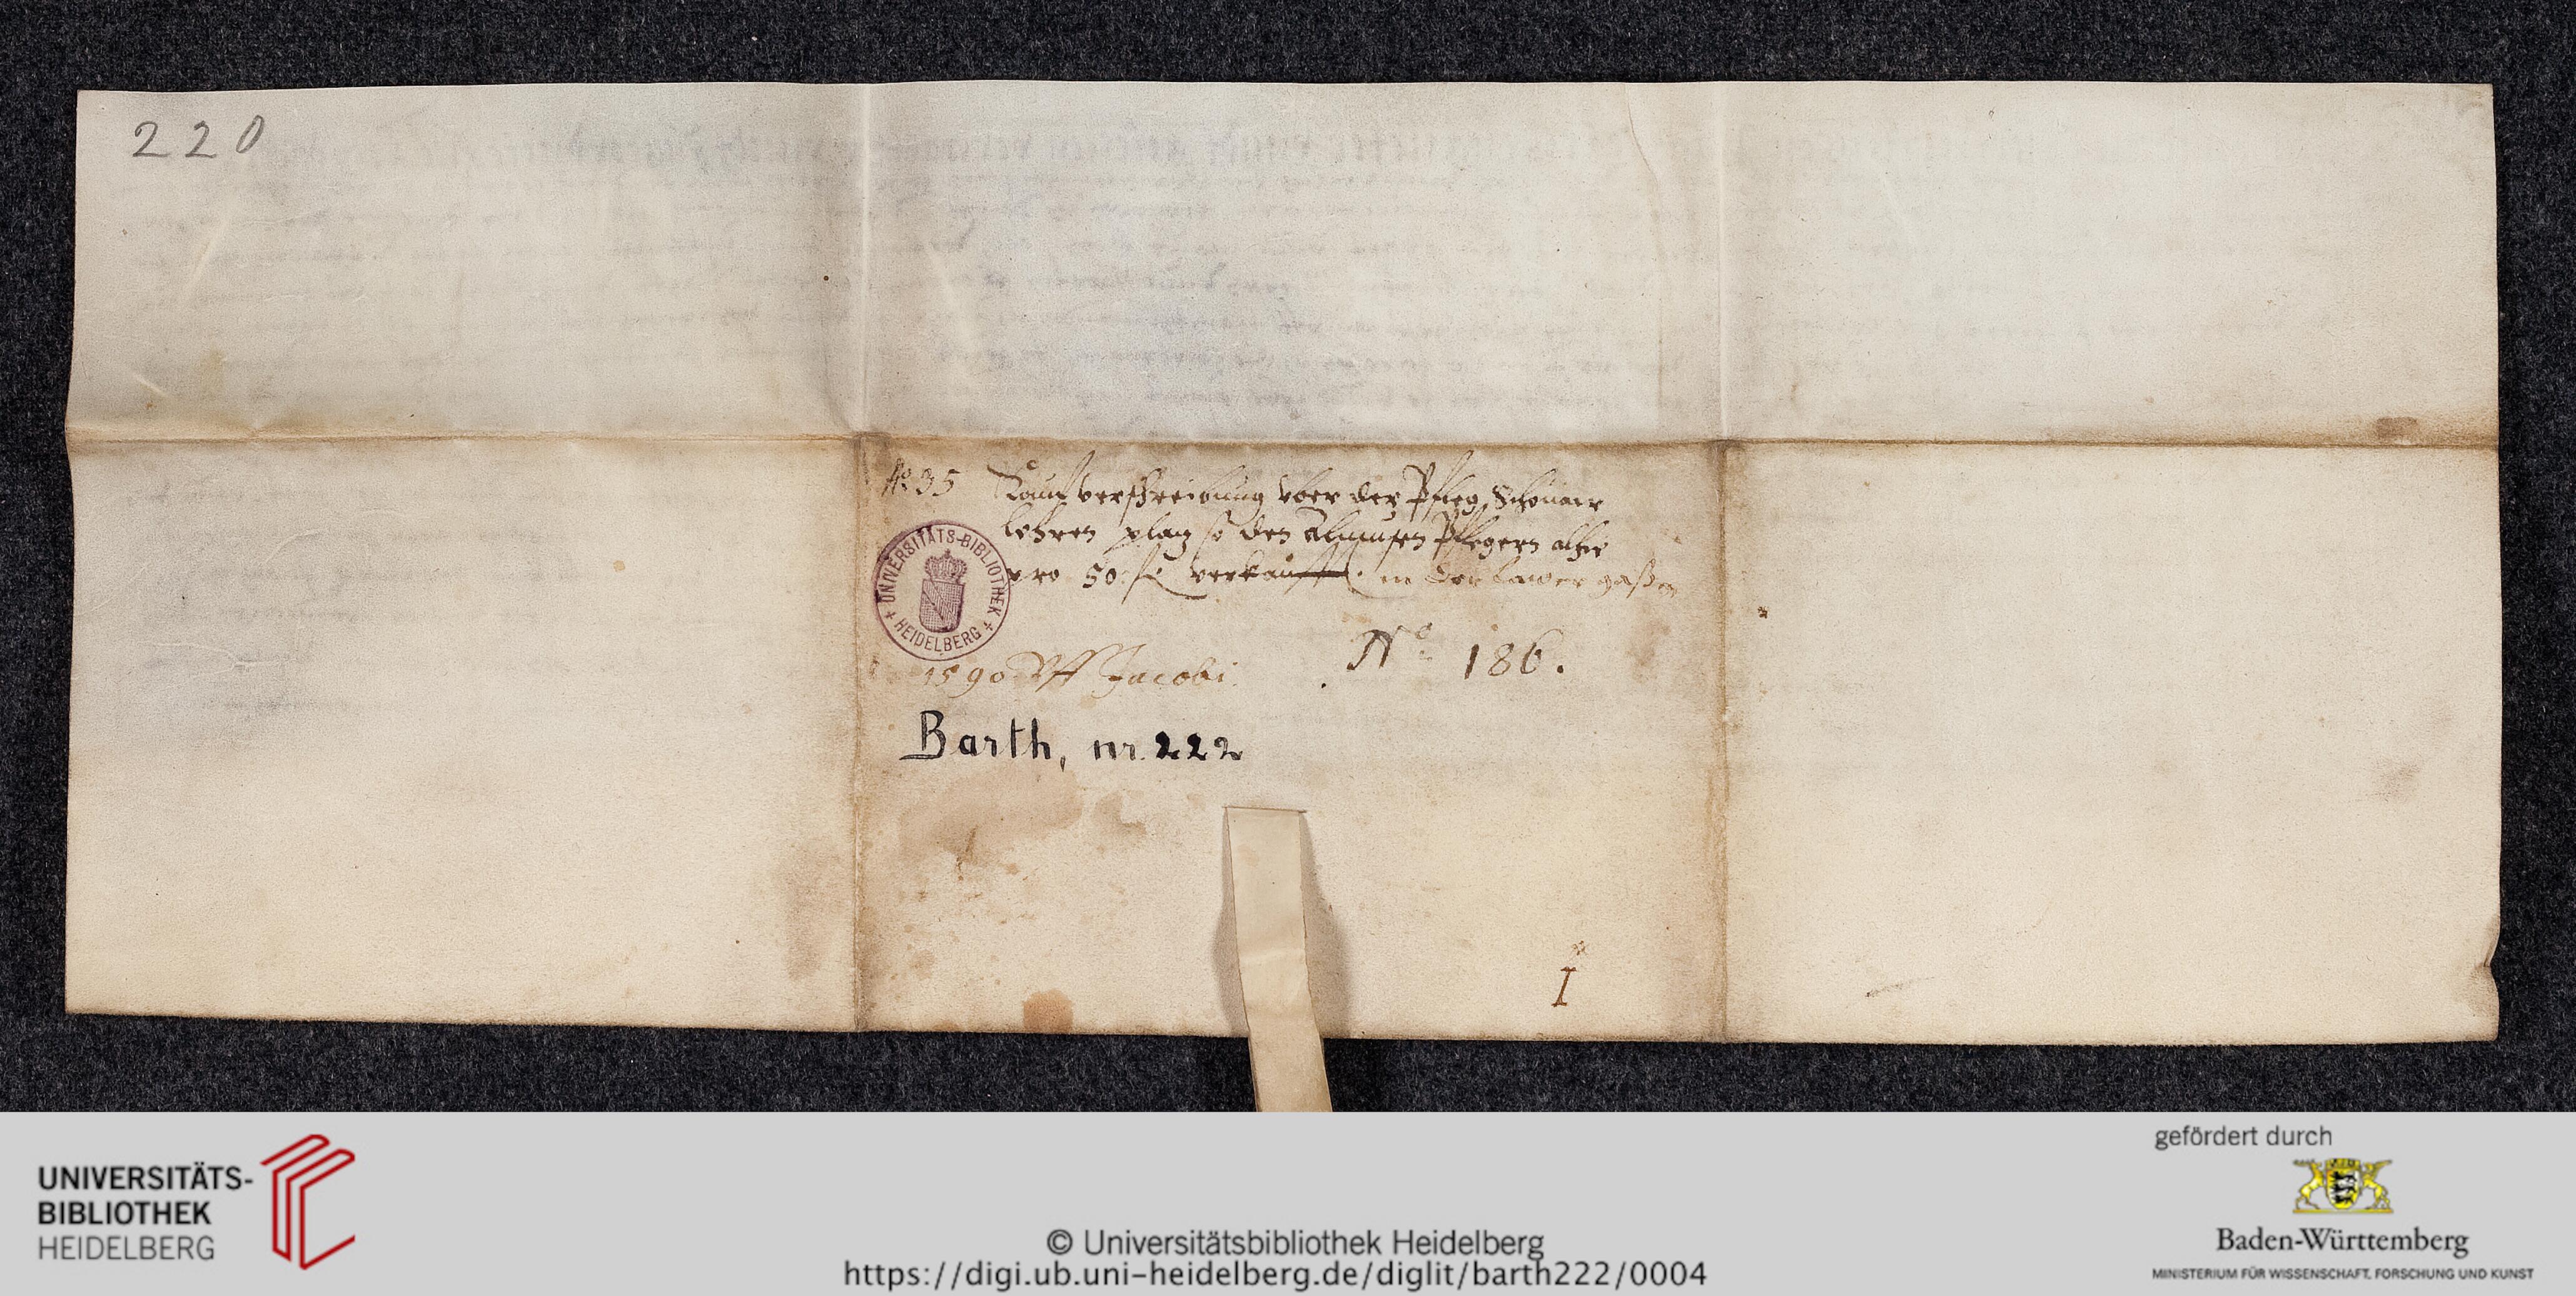 220
No 35 Kauf verschreibung vber der Pfleg Schönaw
lehren platz so den Almusen Pflegern alhie
pro 50 fl verkaufft. in der Lawer gaßen
UNIVERSITÄTS-BIBLIOTHEK
HEIDELBERG
1590 Vff Jacobi
No 186.
Barth, nr. 222
I
UNIVERSITÄTS-
BIBLIOTHEK
HEIDELBERG
© Universitätsbibliothek Heidelberg
https://digi.ub.uni-heidelberg.de/diglit/barth222/0004
gefördert durch
Baden-Württemberg
MINISTERIUM FÜR WISSENSCHAFT, FORSCHUNG UND KUNST